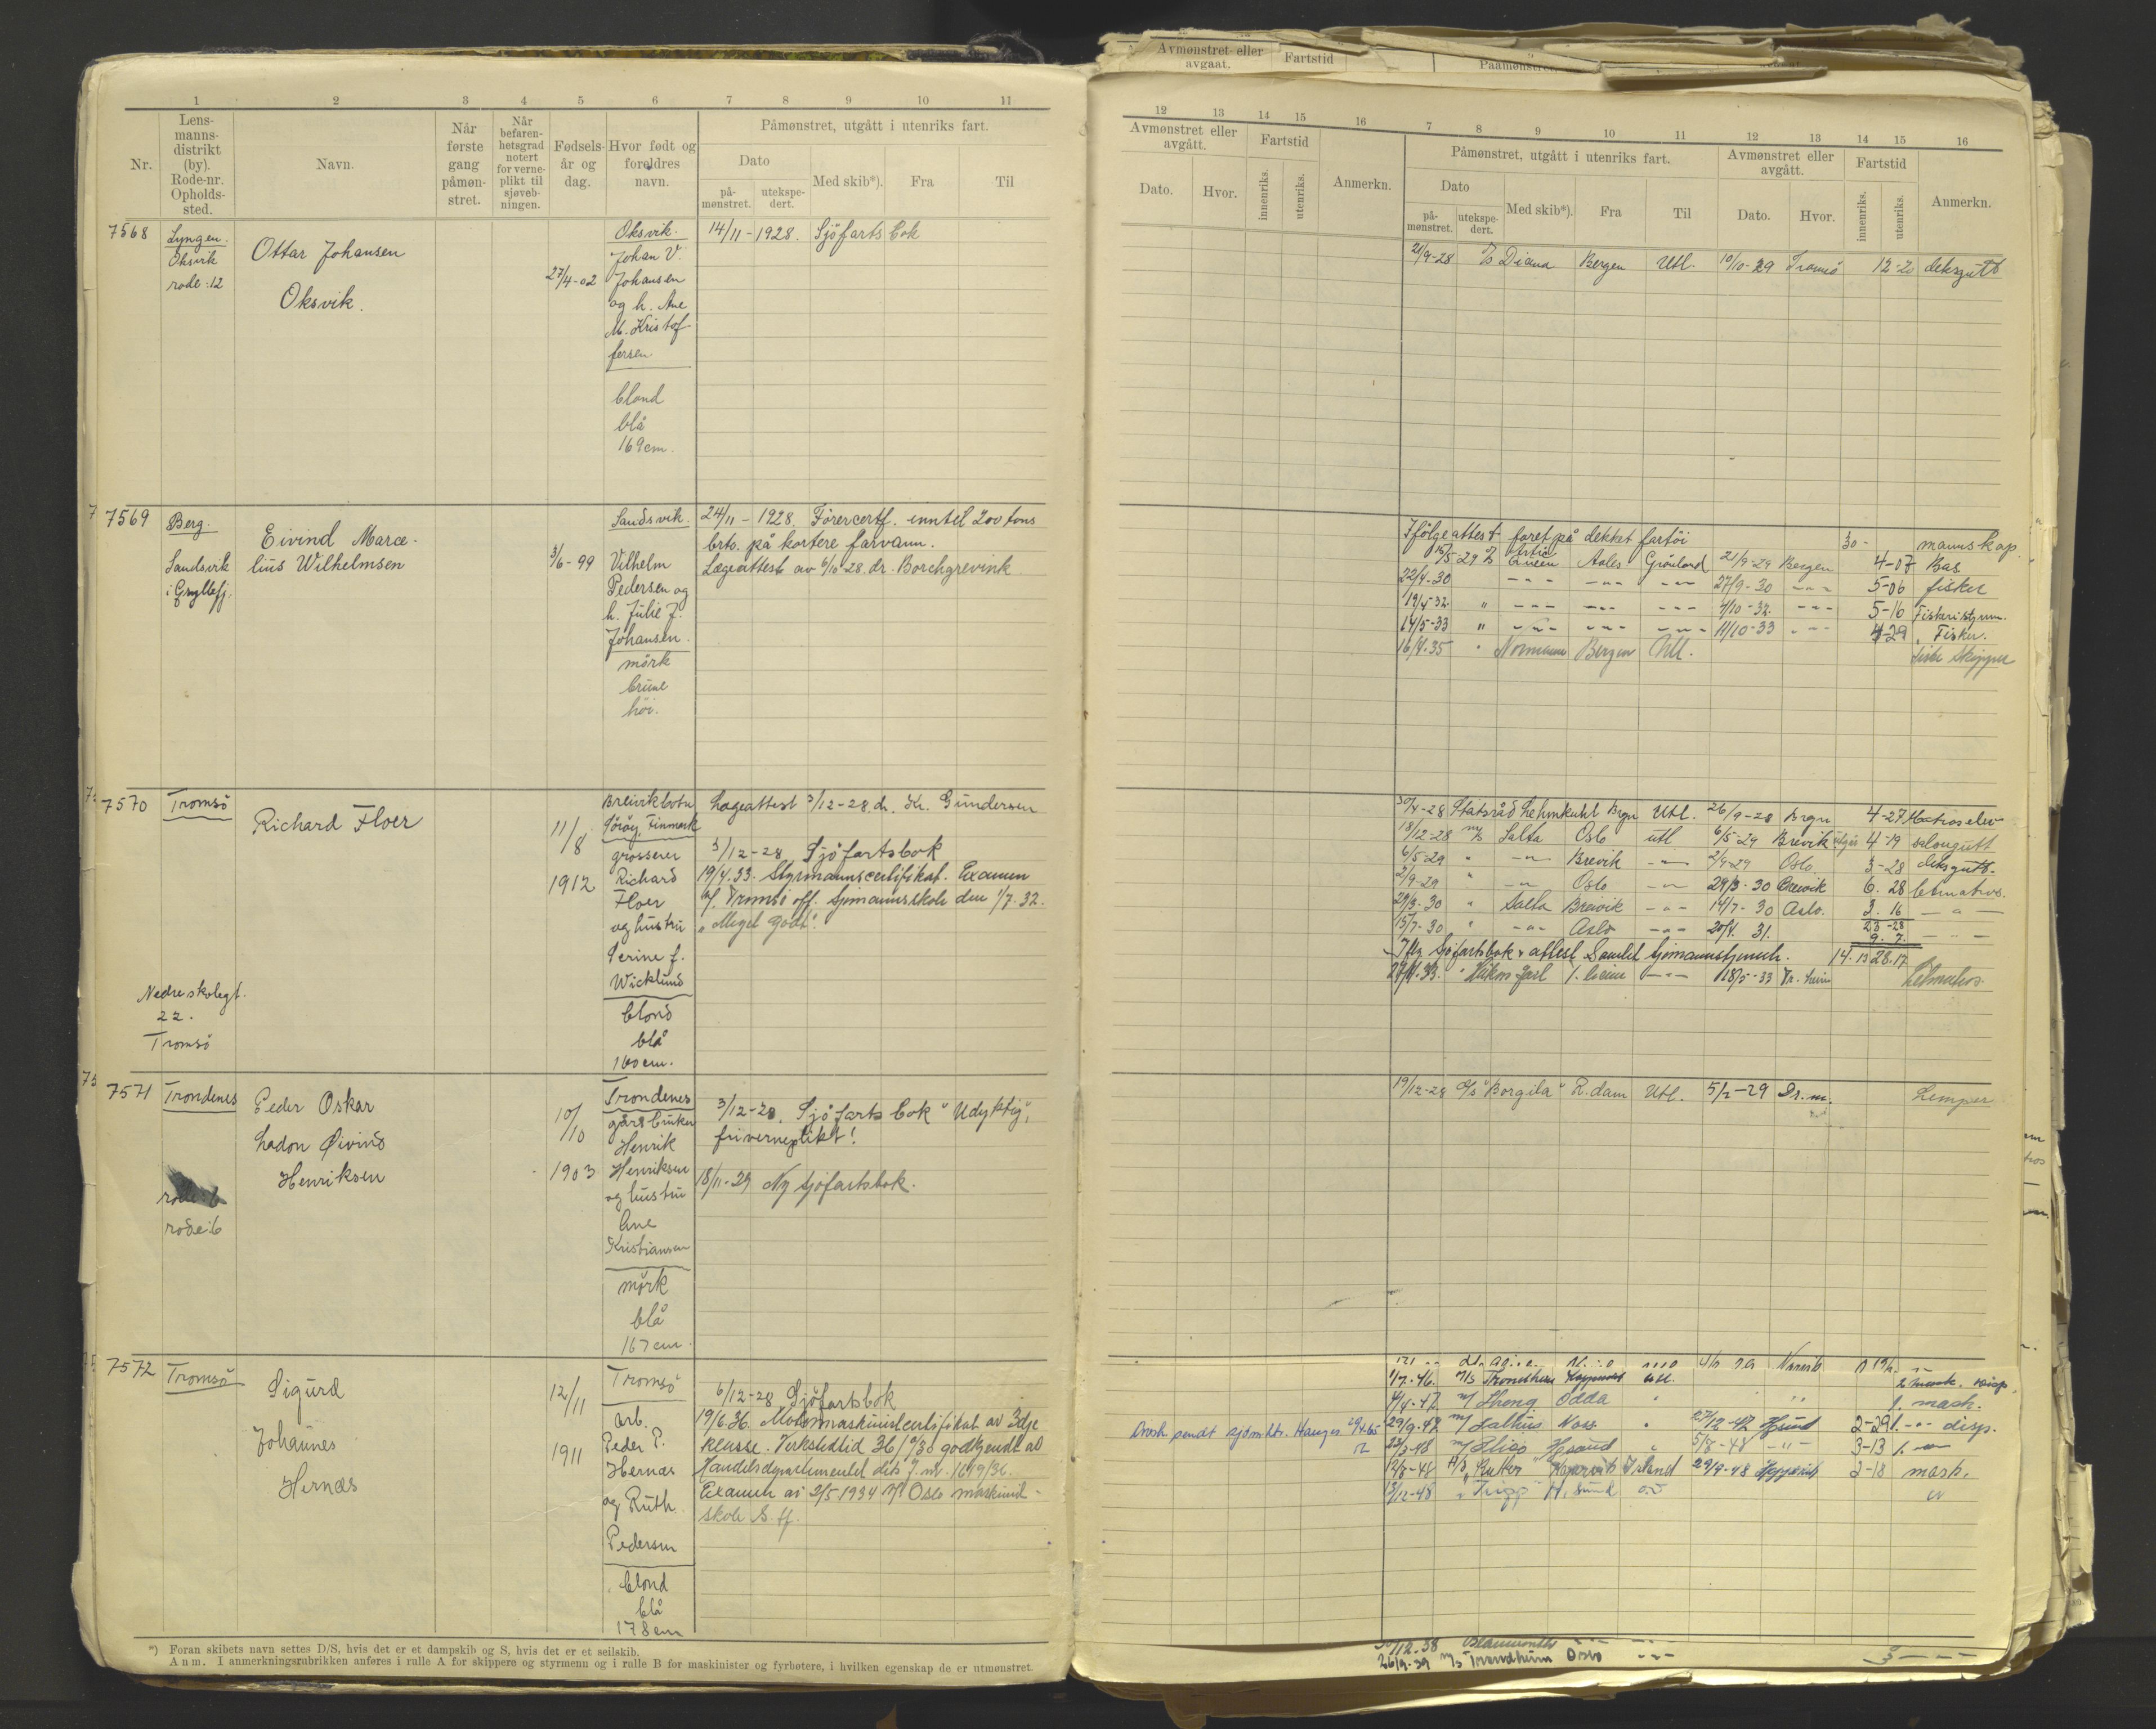 1 2 3 4 5 6 7 8 9 10 11
Nr.
Lens-
manns-
distrikt
(by).
Rode-nr.
Opholds-
sted.
Navn.
Når
første
gang
påmøn-
stret.
Når
befaren-
hetsgrad
notert
for verne-
plikt til
sjøveb-
ningen.
Fødsels-
år og
dag.
Hvor født og
foreldres
navn.
Påmønstret, utgått i utenriks fart.
Dato
på-
mønstret.
utekspe-
dert.
Med skib*).
Fra
Til
7568
Lyngen.
Oksvik
rode: 12
Ottar Johansen
Oksvik.
27/4-02
Oksvik.
Johan V.
Johansen
og h. Ane
M. Kristof-
fersen
blond
blå
169 cm.
14/11-1928. Sjöfartsbok
7569
Berg.
Sandsvik
i Gryllefj.
Eivind Marce-
lius Wilhelmsen
3/6-99
Sandsvik.
Vilhelm
Pedersen og
h. Julie J.
Johansen.
mörk
brune
höi.
24/11-1928. Förercertf. inntil 200 tons
brto. på kortere farvann.
Lægeattest av 6/10-28. dr. Borchgrevink
7570
Tromsö
Nedre skolegt.
22.
Tromsö
Richard Floer
11/8
1912
Breivikbotn
Söröy, Finmark
grosserer
Richard
Floer
og hustru
Serine f.
Wicklund
blond
blå
160 cm.
Lægeattest 3/12-28. dr. Kr. Gundersen
3/12-28 Sjöfartsbok
19/4.33. Styrmannscertifikat. Examen
v/ Tromsö off. Sjömannsskole den 1/7.32.
"Meget godt".
7571
Trondenes
rode: 6
rode: 6
Peder Oskar
Ladon Øivind
Henriksen
10/10
1903
Trondenes
gårdbruker
Henrik
Henriksen
og hustru
Ane
Kristiansen
mörk
blå
167 cm.
3/12-28. Sjöfartsbok "Udyktig",
fri verneplikt!
18/11-29 Ny sjöfartsbok.
7572
Tromsö
Sigurd
Johannes
Hernæs
12/11
1911
Tromsö
arb.
Peder P.
Hernæs
og Ruth
Pedersen
blond
blå
178 cm
6/12-28 Sjöfartsbok
19/6.36. Motormaskinistcertifikat av 3dje
klasse. Verkstedtid godkjendt av
Handelsdepartementet
Examen av 2/5 1934 v/ Oslo maskinist-
skole
*) Foran skibets navn settes D/S, hvis det er et dampskib og S, hvis det er et seilskib.
Anm. I anmerkningsrubrikken anføres i rulle A for skippere og styrmenn og i rulle B for maskinister og fyrbøtere, i hvilken egenskap de er utmønstret.
Avmønstret eller
avgaat.
Fartstid
12 13 14 15 16 7 8 9 10 11 12 13 14 15 16
Avmønstret eller
avgått.
Dato.
Hvor.
Fartstid
innenriks.
utenriks.
Anmerkn.
Påmønstret, utgått i utenriks fart.
Dato
på-
mønstret.
utekspe-
dert.
Med skib*).
Fra
Til
Avmønstret eller
avgått.
Dato.
Hvor.
Fartstid
innenriks.
utenriks.
Anmerkn.
21/9-28 Diana Bergen Utl. 10/10-29 Tromsö 12-20 deksgutt
Ifölge attest faret på dekket fartöi 30- mannskap.
15/5-29 Artic Queen Aales. Grönland 21/9-29 Bergen 4-07 Bas
22/4-30 -"- -"- -"- 27/9-30 -"- 5-06 fisker
19/4-32 " -"- -"- -"- 4/10-32 -"- 5-16 Fiskeristyrm.
14/5-33 " -"- -"- -"- 11/10-33 -"- 4-29 Fisker.
16/4.35 " Normanne Bergen Utl. Skipper
30/4-28 Statsråd Lehmkuhl Brgn Utl. 26/9-28 Brgn 4-27 Matroselev
18/12-28 m/s Salta Oslo utl 6/5-29 Brevik 4-19 salongutt
6/5-29 " -"- Brevik -"- 2/9-29 Oslo 3-28 deksgutt.
2/9-29 " -"- Oslo -"- 29/3-30 Brevik 6.28 letmatros.
29/3-30 " Salta Breivik -"- 14/7-30 Oslo. 3.16 -"-
15/7-30 " -"- Oslo -"- 20/4. 31. 23-28
9.7. -"-
Sjöfartsbok & attest. Samlet sjömannstjeneste. 14.13 28.17
" Håkon Jarl 18/5-33 Tr.heim Letmatros.
19/12-28 D/s "Borgila" R.dam Utl. 5/2-29 Dr.m. Lemper
1/7-46. M/s Trondheim utl. 2 mask. disp.
4/4-47 m/ Odda " 1. mask.
29/9-47 m/ 27/12-47 H.sund 2-29 1. -"- disp.
Drosh sendt sjömdtr. Hauges. 29/4-65
23/3-48 m/ H.sund " 5/8-48 -"- 3-13 1. -"-
12/8-48 "Rutter" Island 29/9-48 2-18 mask.
13/12-48 " H.sund
12-38
26/9-39 m/s Trondheim Oslo -"-